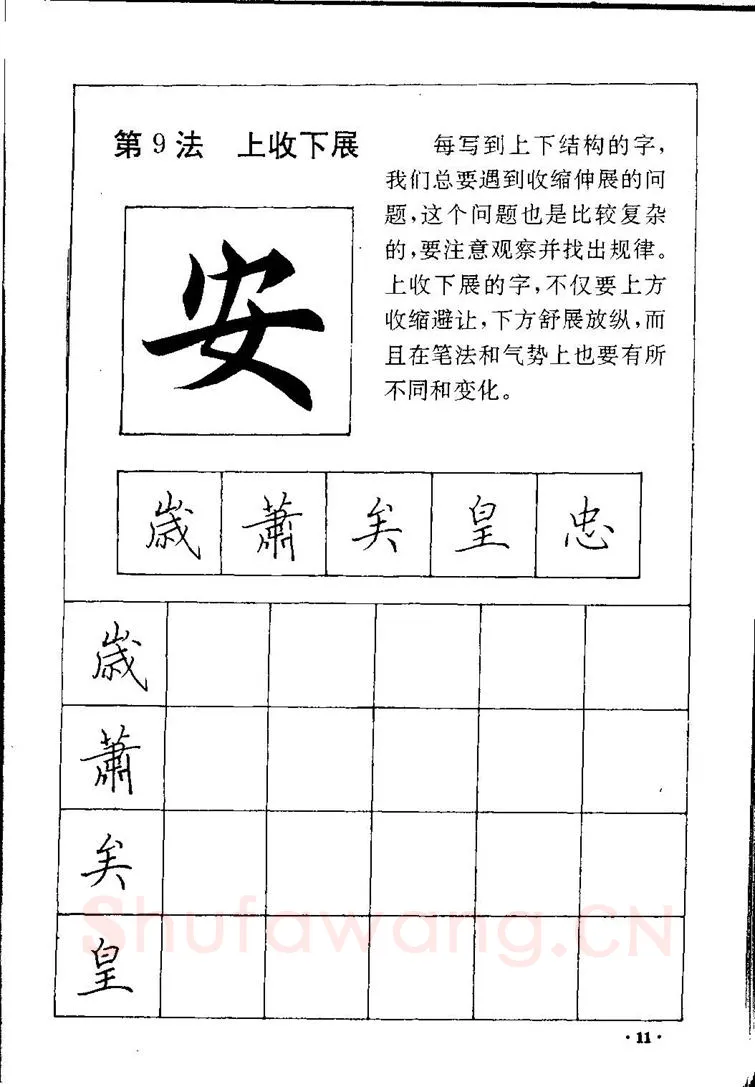 第9法 上收下展
每写到上下结构的字，
我们总要遇到收缩伸展的问
题，这个问题也是比较复杂
的，要注意观察并找出规律。
上收下展的字，不仅要上方
收缩避让，下方舒展放纵，而
且在笔法和气势上也要有所
不同和变化。
安
歲 蕭 矣 皇 忠
歲
蕭
矣
皇
Shufawang.CN
·11·